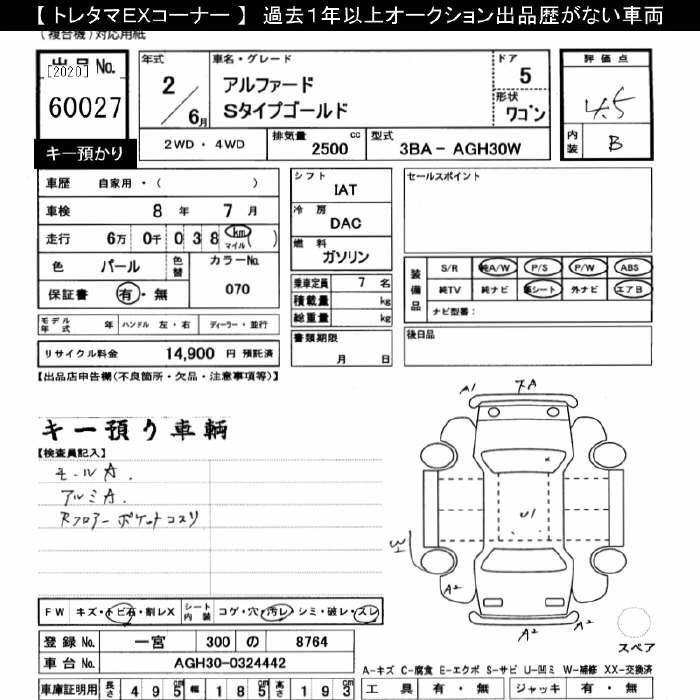 【 トレタマEXコーナー 】 過去1年以上オークション出品歴がない車両
(複合機)対応用紙
出品 No.
[2020]
60027
キー預かり
年式
2/6月
車名・グレード
アルファード
Sタイプゴールド
ドア
5
形状
ワゴン
2WD・4WD
排気量 2500 cc
型式 3BA－ AGH30W
評価点
4.5
内装 B
車歴 自家用・( )
車検 8年 7月
走行 6万 0千 038 km マイル ( )
色 パール 色替
カラーNo. 070
保証書 有・無
シフト IAT
冷房 DAC
燃料 ガソリン
乗車定員 7 名
積載量 kg
総重量 kg
書類期限
月 日
セールスポイント
装備品
S/R 純A/W P/S P/W ABS
純TV 純ナビ 革シート 外ナビ エアB
ナビ型番：
後日品
モデル年式 年 ハンドル 左・右 ディーラー・並行
リサイクル料金 14,900 円 預託済
【出品店申告欄(不良箇所・欠品・注意事項等)】
キー預り車輌
【検査員記入】
モールA.
アルミA.
Rフロアーポケットコスリ
A1
A
U1
A2
A2
A2
FW キズ・トビ石・割レX シート内装 コゲ・穴・汚レ・シミ・破レ・スレ
登録 No. 一宮 300 の 8764
車台 No. AGH30-0324442
車庫証明用 長さ 495 cm 幅 185 cm 高さ 193 cm
スペア
A-キズ C-腐食 E-エクボ S-サビ U-凹ミ W-補修 XX-交換済
工具 有・無 ジャッキ 有・無